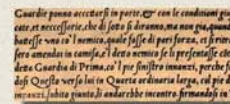 Guardie ponno accettarsi in parte, & con le condittioni gia
cate, et neccessarie, che di sotto si diranno, ma non mai, quando
batesse vno co'l nemico, quale fosse di pari forza, et si ritro
fero amendui in camisa, e'l detto nemico se li presentasse
detta Guardia di Prima, co'l pie sinistro innanzi, perche
dosi Questo verso lui in Quarta ordinaria larga, col pie
innanzi, subito giunto, li andarebbe incontro, firmandosi in